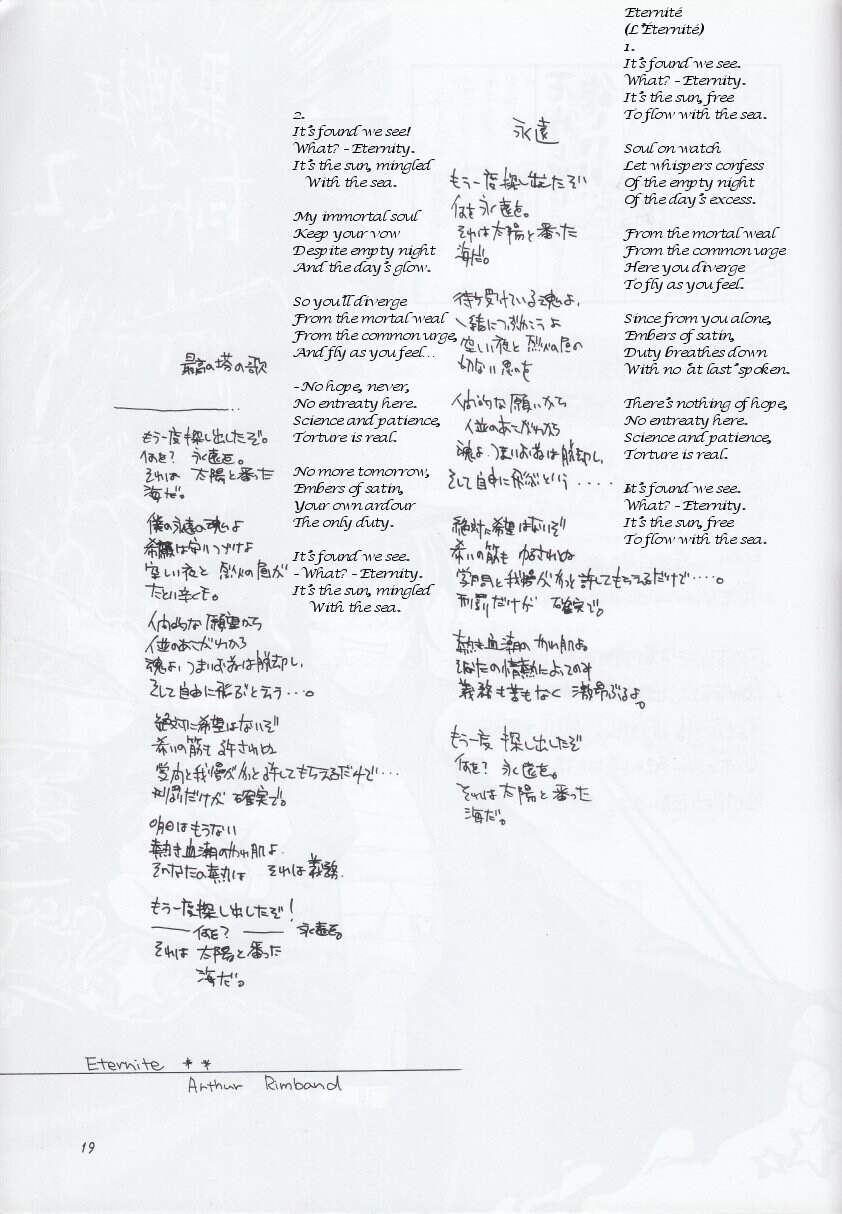 Eternité
(L'Éternité)
1.
It's found we see.
What? – Eternity.
It's the sun, free
To flow with the sea.
Soul on watch
Let whispers confess
Of the empty night
Of the day's excess.
From the mortal weal
From the common urge
Here you diverge
To fly as you feel.
Since from you alone,
Embers of satin,
Duty breathes down
With no 'at last' spoken.
There's nothing of hope,
No entreaty here.
Science and patience,
Torture is real.
It's found we see.
What? – Eternity.
It's the sun, free
To flow with the sea.
永遠
もう一度探し出したぞ
何を永遠を。
それは太陽と番った
海だ。
待ち受けている魂よ、
一緒につぶやこうよ
空しい夜と烈火の昼の
切ない思いを
人間的な願いから
人並のあこがれから
魂よ、つまりお前は脱却し、
そして自由に飛ぶという・・・・
絶対に希望はないぞ
希いの筋も ゆるされぬ
学問と我慢がやっと許してもらえるだけで・・・・。
刑罰だけが 確実で。
熱き血潮のやわ肌よ
あなたの情熱によってのみ
義務も苦もなく 激昂ぶるよ。
もう一度 探し出したぞ
何を? 永遠を。
それは太陽と番った
海だ。
2.
It's found we see!
What? – Eternity.
It's the sun, mingled
With the sea.
My immortal soul
Keep your vow
Despite empty night
And the day's glow.
So you'll diverge
From the mortal weal
From the common urge,
And fly as you feel...
- No hope, never,
No entreaty here.
Science and patience,
Torture is real.
No more tomorrow,
Embers of satin,
Your own ardour
The only duty.
It's found we see.
- What? – Eternity.
It's the sun, mingled
With the sea.
最高の塔の歌
もう一度探し出したぞ。
何を? 永遠を。
それは 太陽と番った
海だ。
僕の永遠の魂よ
希願は守りつづけよ
空しい夜と 烈火の昼が
たとい辛くとも。
人間的な願望から
人並のあこがれから
魂よ、つまりお前は脱却し、
そして自由に飛ぶと云う・・・。
絶対に希望はないぞ
希いの筋も許されぬ
学問と我慢がやっと許してもらえるだけで・・・
刑罰だけが 確実で。
明日はもうない
熱き血潮のやわ肌よ
そなたの熱は それは義務。
もう一度探し出したぞ!
――何を? ―― 永遠を。
それは 太陽と番った
海だ。
Eternite **
Arthur Rimband
19